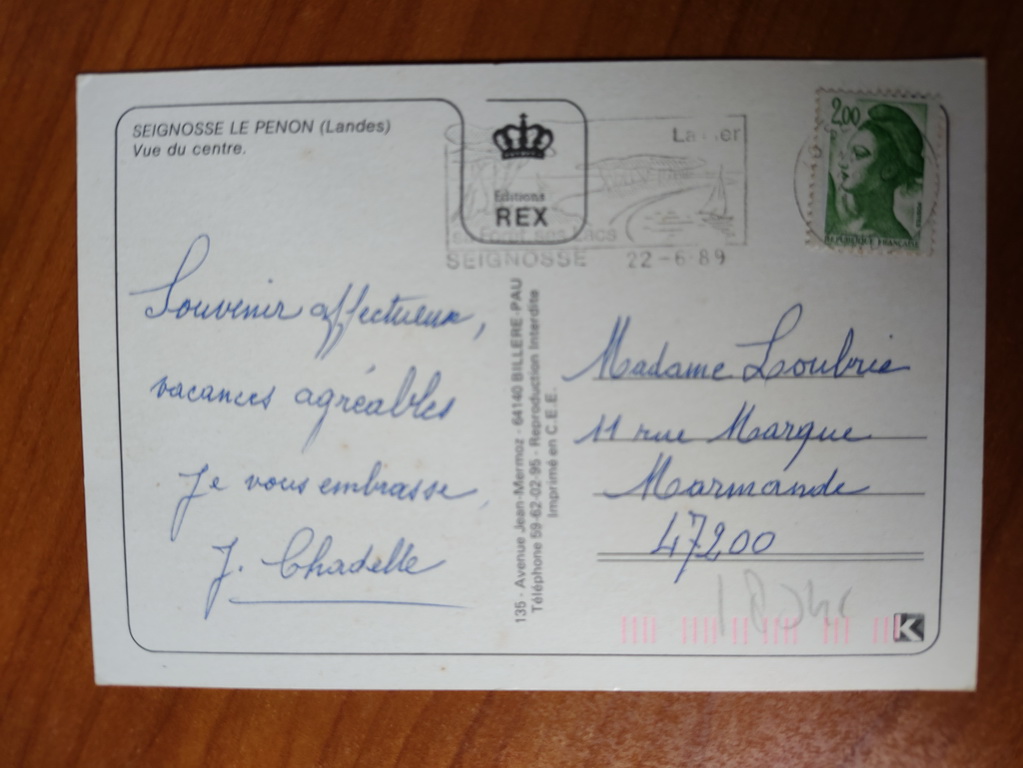 SEIGNOSSE LE PENON (Landes)
Vue du centre.
Editions
REX
sa Forêt ses Lacs
SEIGNOSSE 22-6-89
2.00
REPUBLIQUE FRANÇAISE
Souvenir affectueux,
vacances agréables
Je vous embrasse,
J. Chadelle
135 - Avenue Jean-Mermoz - 64140 BILLERE-PAU
Téléphone 59-62-02-95 - Reproduction Interdite
Imprimé en C.E.E.
Madame Loubrie
11 rue Marque
Marmande
47200
K